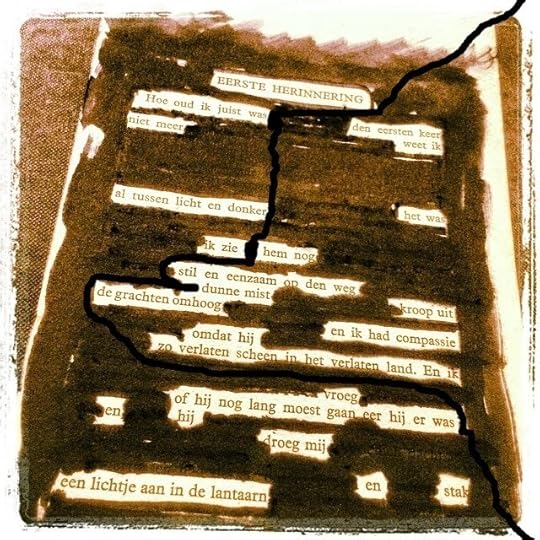 EERSTE HERINNERING
Hoe oud ik juist was
niet meer
den eersten keer
weet ik
al tussen licht en donker
het was
ik zie hem nog
stil en eenzaam op den weg
dunne mist
de grachten omhoog
kroop uit
omdat hij en ik had compassie
zo verlaten scheen in het verlaten land. En ik
vroeg
of hij nog lang moest gaan eer hij er was
en hij
droeg mij
een lichtje aan in de lantaarn en stak